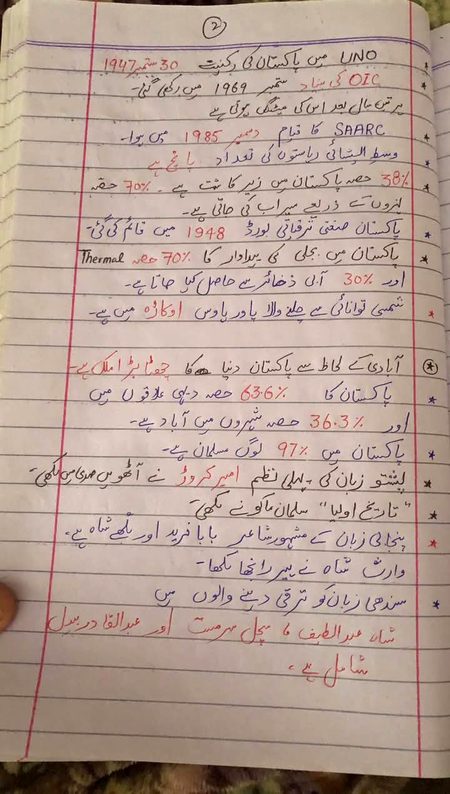 2
UNO میں پاکستان کی رکنیت 30 ستمبر 1947
OIC کی بنیاد ستمبر 1969 میں رکھی گئی۔
ہر تین سال بعد اس کی میٹنگ ہوتی ہے
SAARC کا قیام دسمبر 1985 میں ہوا۔
وسط ایشیائی ریاستوں کی تعداد پانچ ہے
38% حصہ پاکستان میں زیر کاشت ہے۔ 70% حصہ
نہروں کے ذریعے سیراب کی جاتی ہے۔
پاکستان صنعتی ترقیاتی بورڈ 1948 میں قائم کی گئی۔
پاکستان میں بجلی کی پیداوار کا 70% حصہ Thermal
اور 30% آبی ذخائر سے حاصل کیا جاتا ہے۔
شمسی توانائی سے چلنے والا پاور ہاوس اوکاڑہ میں ہے۔
آبادی کے لحاظ سے پاکستان دنیا کا چھٹا بڑا ملک ہے۔
پاکستان کا 63.6% حصہ دیہی علاقوں میں
اور 36.3% حصہ شہروں میں آباد ہے۔
پاکستان میں 97% لوگ مسلمان ہے۔
پشتو زبان کی پہلی نظم امیر کروڑ نے آٹھویں صدی میں لکھی۔
"تاریخ اولیا" سلمان ماکو نے لکھی۔
پنجابی زبان کے مشہور شاعر بابا فرید اور بلھے شاہ ہے۔
وارث شاہ نے ہیر رانجھا لکھا۔
سندھی زبان کو ترقی دینے والوں میں
شاہ عبدالطیف سچل سرمست اور عبدالقادر بیدل
شامل ہے۔